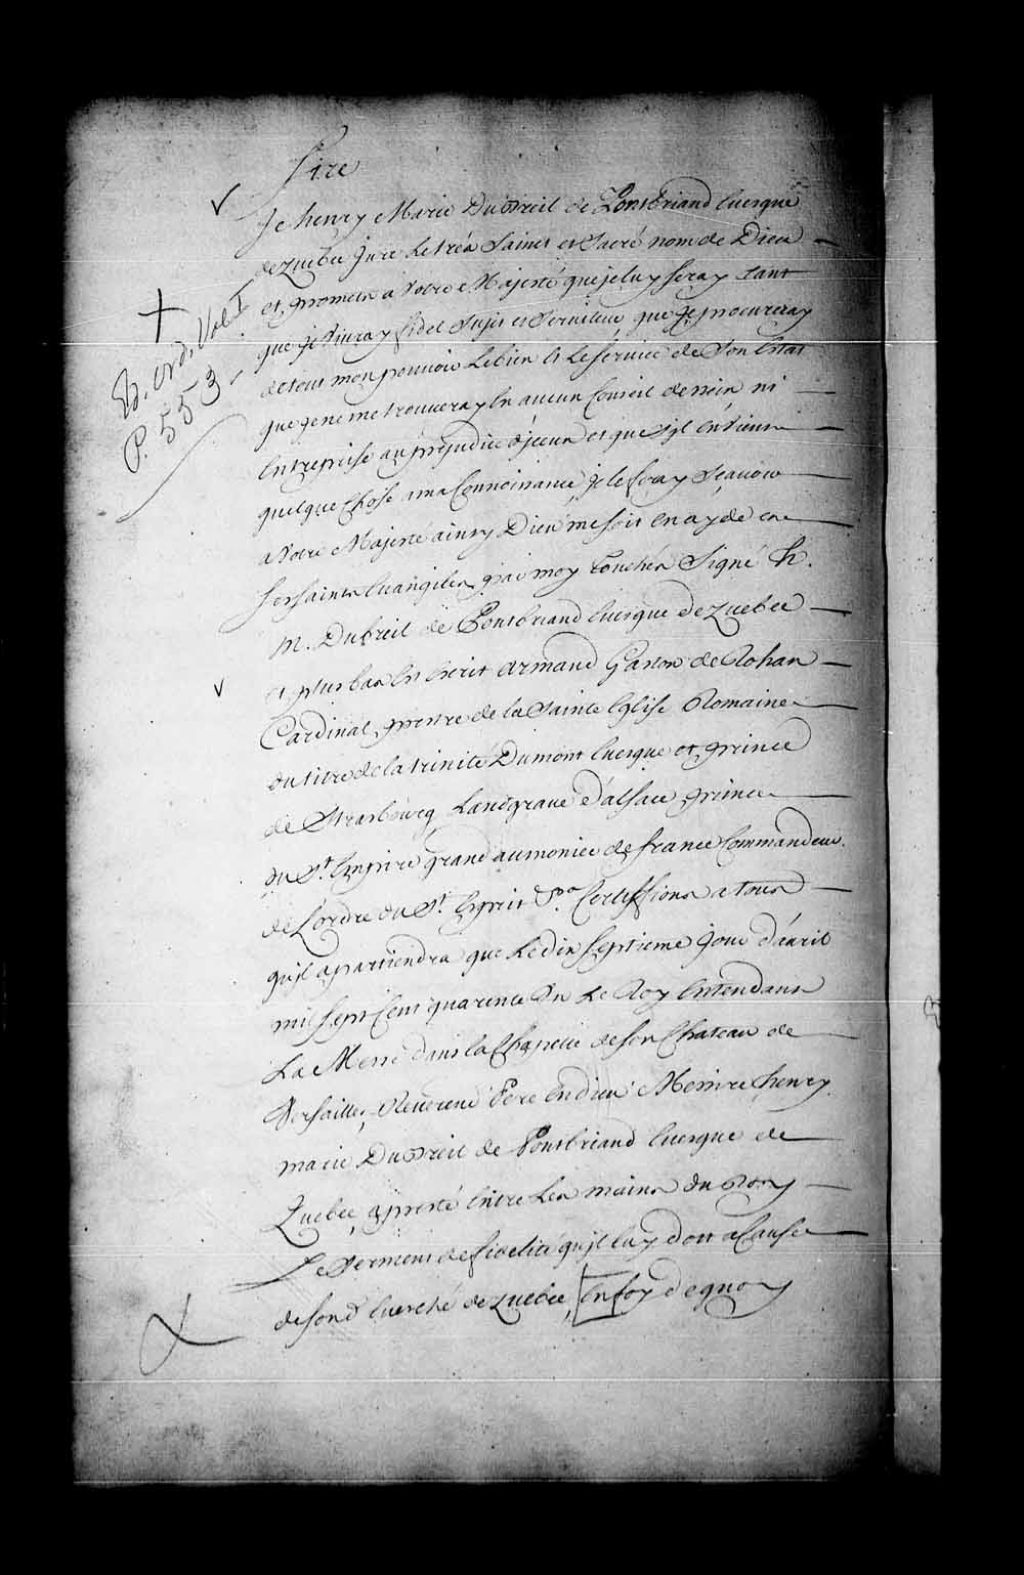 Sire
Je henry Marie Dubreil de Pontbriand Evesque
de Quebec Jure Le trés Saint et Sacré nom de Dieu
et promets a Votre Majesté que je luy seray tant
que je Vivray fidel Sujet et Serviteur que je procureray
de tout mon pouvoir Le bien et Le Service de Son Estat
que je ne me trouveray En aucun Conseil dessein ni
Entreprise au préjudice d'jceux et que s'jl En Vient
quelque Chose a ma Connoissance je le feray Sçavoir
a Votre Majesté ainsy Dieu me soit En ayde et
ses saints Evangiles par moy touchés Signé h.
M. Dubreil de Pontbriand Evesque de Quebec
et plus bas Est Ecrit Armand Gaston de Rohan
Cardinal prestre de la Sainte Eglise Romaine
du titre de la trinité Dumont Evesque et prince
de Strasbourg Landgrave d'alsace prince
du St. Empire grand aumonier de france Commandeur
de L'ordre du St. Esprit &a. Certiffions a tous
qu'jl apartiendra que Le dix septieme jour d'avril
mil sept Cent quarente Un Le Roy Entendant
La Messe dans la Chapelle de son Chateau de
Versailles, Reverend Pere En dieu Messire henry
marie Dubreil de Pontbriand Evesque de
Quebec a presté Entre Les mains du Roy
Le Serment de fidelité qu'jl luy doit a Cause
de sond. Evesché de Quebec, En foy dequoy
Ed. Ord. Vol. I
P. 553